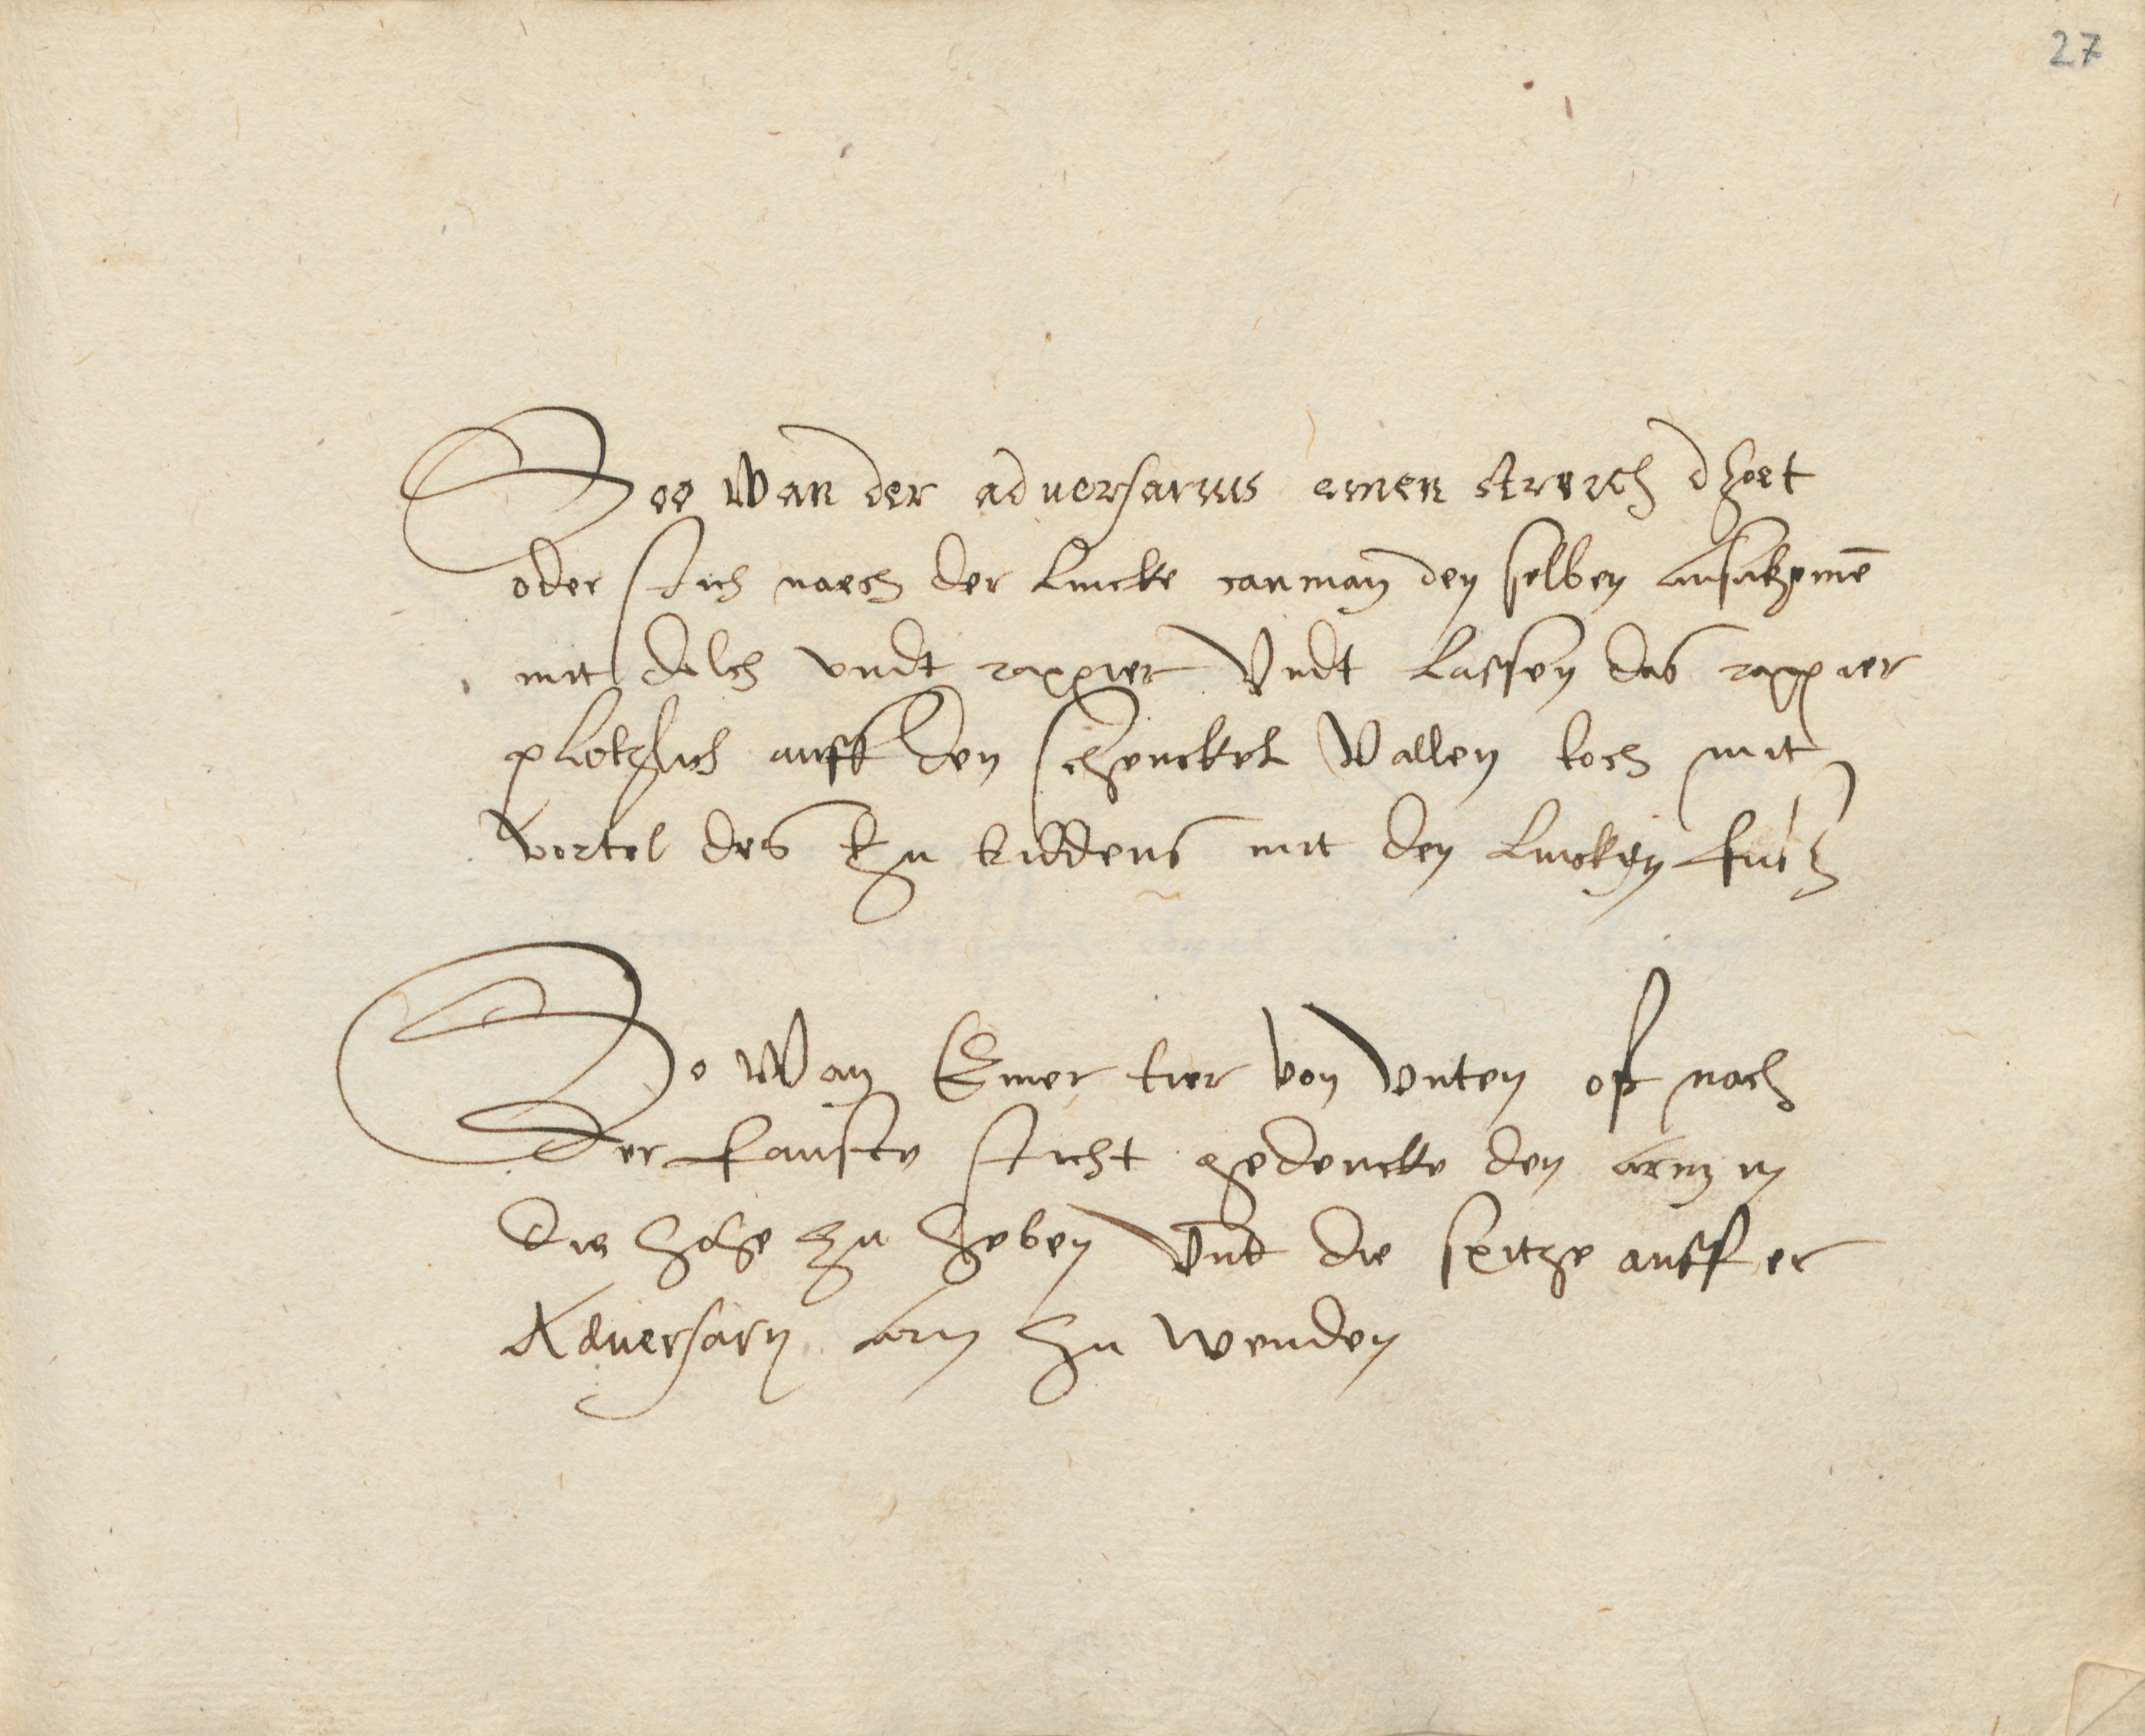 27
Soo wan der adversarius einen streich dhoet
oder stich naech der lincke can man den selben
mit dolch undt rappier Undt lassen das rappier
plotzlich auff den schenckel Vallen toch mit
vortel des mit den lincken fuess
So Wan Einer tier von Unten op nach
der fauste sticht gedencke den arm in
die hohe zu heben Und die spitze auff er
Adversary arm zu wenden